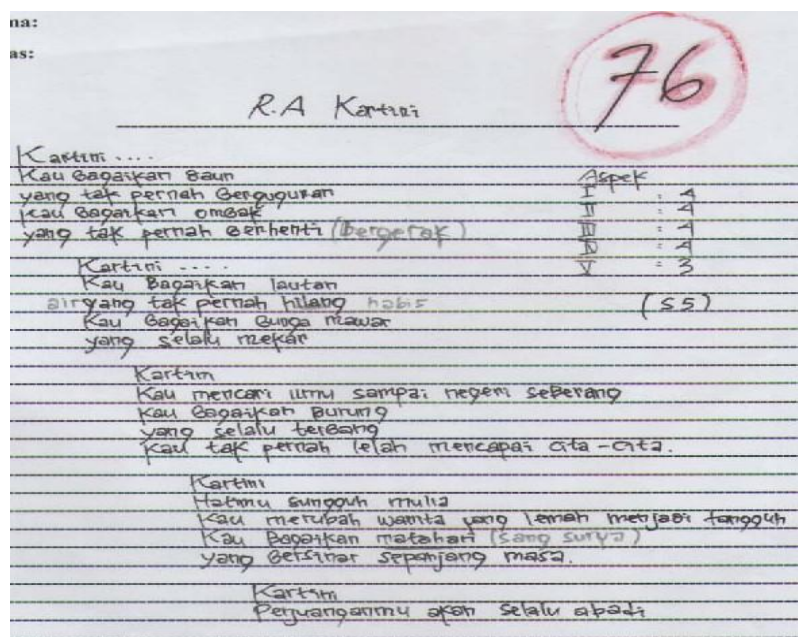 na:
as:
76
R.A Kartini
Kartini ....
Kau Bagaikan Daun
yang tak pernah Berguguran
Kau Bagaikan ombak
yang tak pernah Berhenti (bergerak)
Aspek
I : 4
II : 4
III : 4
IV : 4
V : 3
(S5)
Kartini ....
Kau Bagaikan lautan
air yang tak pernah hilang habis
Kau Bagaikan Bunga mawar
yang selalu mekar
Kartini
Kau mencari ilmu sampai negeri seberang
Kau Bagaikan Burung
yang selalu terbang
Kau tak pernah lelah mencapai cita-cita.
Kartini
Hatimu sungguh mulia
Kau merubah wanita yang lemah menjadi tangguh
Kau Bagaikan matahari (sang surya)
yang Bersinar sepanjang masa.
Kartini
Perjuanganmu akan selalu abadi